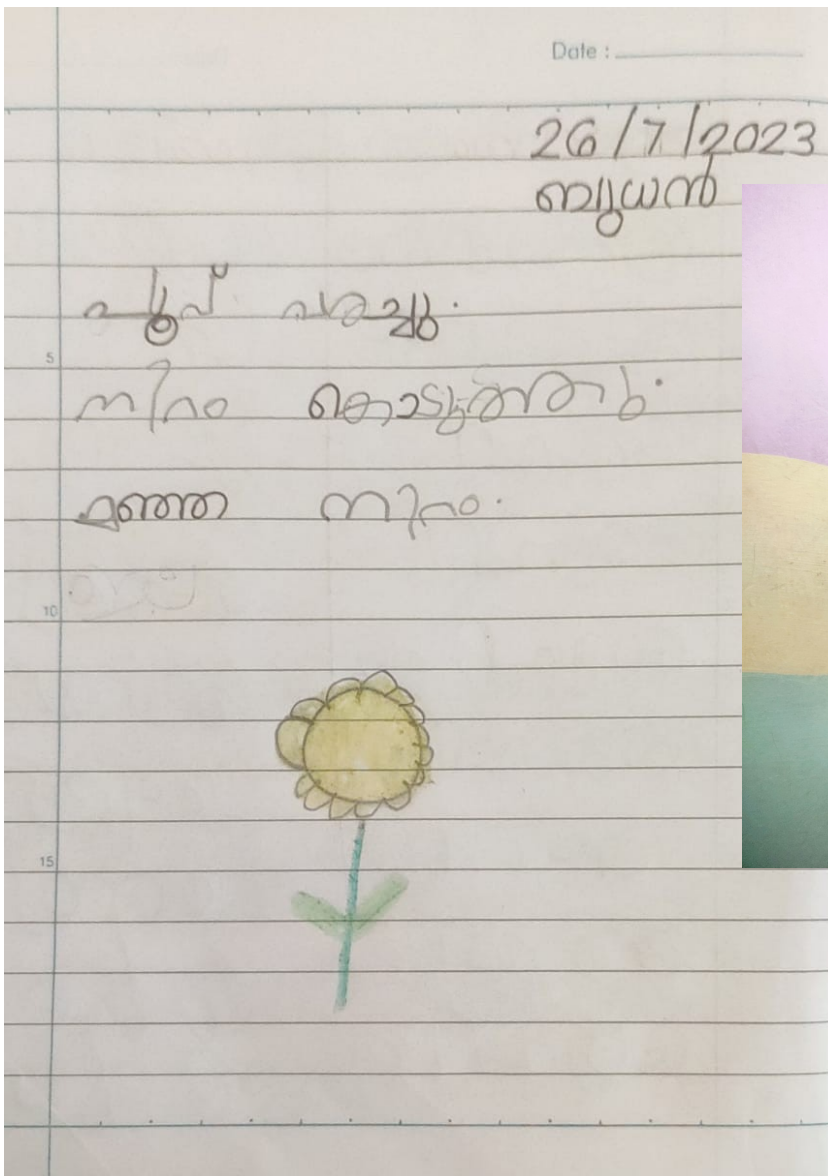 Date :
26/7/2023
ബുധൻ
പൂവ് വരച്ചു.
5
നിറം കൊടുത്തു.
മഞ്ഞ നിറം.
10
15